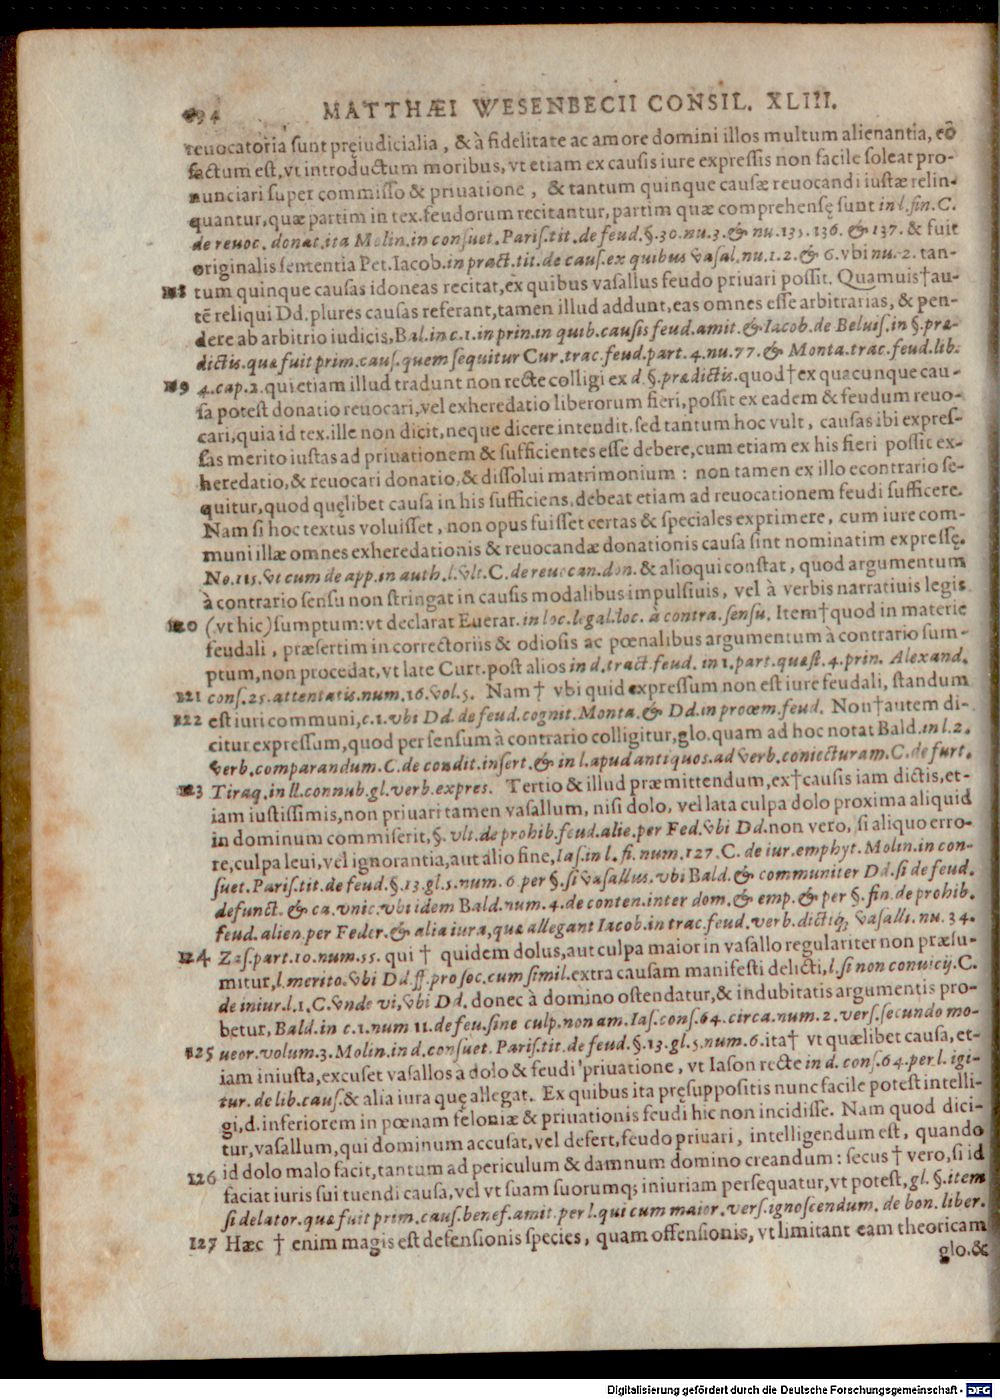 94 MATTHÆI WESENBECII CONSIL. XLIII.
reuocatoria sunt pręiudicialia, & à fidelitate ac amore domini illos multum alienantia, eò
factum est, vt introductum moribus, vt etiam ex causis iure expressis non facile soleat pro-
nunciari super commisso & priuatione, & tantum quinque causæ reuocandi iustæ relin-
quantur, quæ partim in tex. feudorum recitantur, partim quæ comprehensę sunt in l. fin. C.
de reuoc. donat. ita Molin. in consuet. Paris. tit. de feud. §. 30. nu. 3. & nu. 135. 136. & 137. & fuit
originalis sententia Pet. Iacob. in pract. tit. de caus. ex quibus vasal. nu. 1. 2. & 6. vbi nu. 2. tan-
118 tum quinque causas idoneas recitat, ex quibus vasallus feudo priuari possit. Quamuis † au-
tē reliqui Dd. plures causas referant, tamen illud addunt, eas omnes esse arbitrarias, & pen-
dere ab arbitrio iudicis, Bal. in c. 1. in prin. in quib. causis feud. amit. & Iacob. de Beluis. in §. præ-
dictis. quæ fuit prim. caus. quem sequitur Cur. trac. feud. part. 4. nu. 77. & Monta. trac. feud. lib.
119 4. cap. 2. qui etiam illud tradunt non recte colligi ex d. §. prædictis. quod † ex quacunque cau-
sa potest donatio reuocari, vel exheredatio liberorum fieri, possit ex eadem & feudum reuo-
cari, quia id tex. ille non dicit, neque dicere intendit. sed tantum hoc vult, causas ibi expres-
sas merito iustas ad priuationem & sufficientes esse debere, cum etiam ex his fieri possit ex-
heredatio, & reuocari donatio, & dissolui matrimonium: non tamen ex illo econtrario se-
quitur, quod quęlibet causa in his sufficiens, debeat etiam ad reuocationem feudi sufficere.
Nam si hoc textus voluisset, non opus fuisset certas & speciales exprimere, cum iure com-
muni illæ omnes exheredationis & reuocandæ donationis causa sint nominatim expressę.
No. 115. vt cum de app. in auth. l. vlt. C. de reuocan. don. & alioqui constat, quod argumentum
à contrario sensu non stringat in causis modalibus impulsiuis, vel à verbis narratiuis legis
120 (vt hic) sumptum: vt declarat Euerar. in loc. legal. loc. à contra. sensu. Item † quod in materie
feudali, præsertim in correctoriis & odiosis ac pœnalibus argumentum à contrario sum-
ptum, non procedat, vt late Curt. post alios in d. tract. feud. in 1. part. quæst. 4. prin. Alexand.
121 cons. 25. attentatis. num. 16. vol. 5. Nam † vbi quid expressum non est iure feudali, standum
122 est iuri communi, c. 1. vbi Dd. de feud. cognit. Monta. & Dd. in proœm. feud. Non † autem di-
citur expressum, quod per sensum à contrario colligitur, glo. quam ad hoc notat Bald. in l. 2.
verb. comparandum. C. de condit. insert. & in l. apud antiquos. ad verb. coniecturam. C. de furt.
123 Tiraq. in ll. connub. gl. verb. expres. Tertio & illud præmittendum, ex † causis iam dictis, et-
iam iustissimis, non priuari tamen vasallum, nisi dolo, vel lata culpa dolo proxima aliquid
in dominum commiserit, §. vlt. de prohib. feud. alie. per Fed. vbi Dd. non vero, si aliquo erro-
re, culpa leui, vel ignorantia, aut alio fine, Ias. in l. fi. num. 127. C. de iur. emphyt. Molin. in con-
suet. Paris. tit. de feud. §. 13. gl. 5. num. 6 per §. si vasallus. vbi Bald. & communiter Dd. si de feud.
defunct. & ca. vnic. vbi idem Bald. num. 4. de conten. inter dom. & emp. & per §. fin. de prohib.
feud. alien. per Feder. & alia iura, quæ allegant Iacob. in trac. feud. verb. dictiq; vasalli. nu. 34.
124 Zas. part. 10. num. 55. qui † quidem dolus, aut culpa maior in vasallo regulariter non præsu-
mitur, l. merito. vbi Dd. ff. pro soc. cum simil. extra causam manifesti delicti, l. si non conuicij. C.
de iniur. l. 1. C. vnde vi, vbi Dd. donec à domino ostendatur, & indubitatis argumentis pro-
betur, Bald. in c. 1. num 11. de feu. sine culp. non am. Ias. cons. 64. circa. num. 2. vers. secundo mo-
125 ueor. volum. 3. Molin. in d. consuet. Paris. tit. de feud. §. 13. gl. 5. num. 6. ita † vt quælibet causa, et-
iam iniusta, excuset vasallos à dolo & feudi priuatione, vt Iason recte in d. cons. 64. per l. igi-
tur. de lib. caus. & alia iura quę allegat. Ex quibus ita pręsuppositis nunc facile potest intelli-
gi, d. inferiorem in pœnam feloniæ & priuationis feudi hic non incidisse. Nam quod dici-
tur, vasallum, qui dominum accusat, vel defert, feudo priuari, intelligendum est, quando
126 id dolo malo facit, tantum ad periculum & damnum domino creandum: secus † vero, si id
faciat iuris sui tuendi causa, vel vt suam suorumq; iniuriam persequatur, vt potest, gl. §. item
si delator. quæ fuit prim. caus. benef. amit. per l. qui cum maior. vers. ignoscendum. de bon. liber.
127 Hæc † enim magis est defensionis species, quam offensionis, vt limitant eam theoricam
glo. &
Digitalisierung gefördert durch die Deutsche Forschungsgemeinschaft - DFG